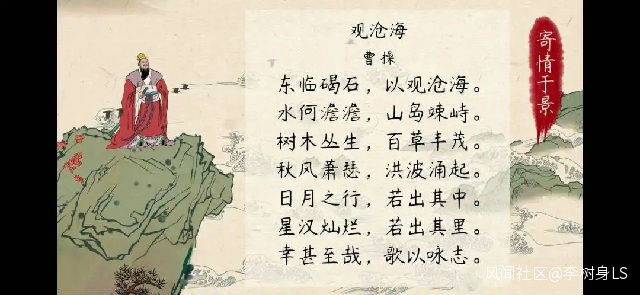 观沧海
曹操
东临碣石，以观沧海。
水何澹澹，山岛竦峙。
树木丛生，百草丰茂。
秋风萧瑟，洪波涌起。
日月之行，若出其中。
星汉灿烂，若出其里。
幸甚至哉，歌以咏志。
寄情于景
风闻社区@李树身LS